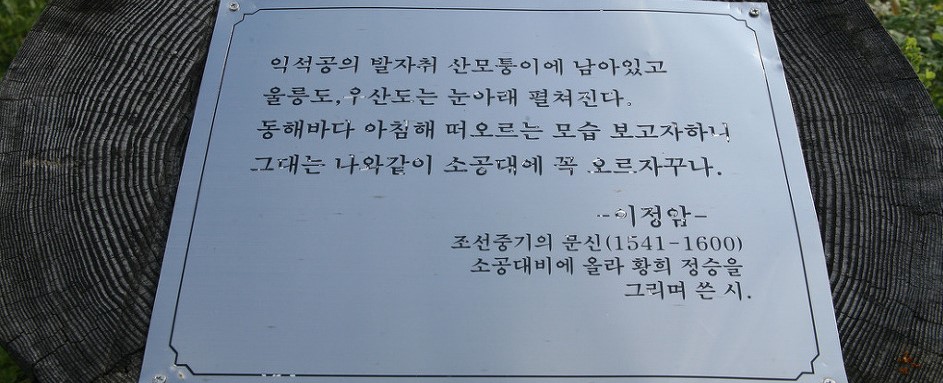 익석공의 발자취 산모퉁이에 남아있고
울릉도,우산도는 눈아래 펼쳐진다.
동해바다 아침해 떠오르는 모습 보고자하니
그대는 나와같이 소공대에 꼭 오르자꾸나.
-이정암-
조선중기의 문신(1541-1600)
소공대비에 올라 황희 정승을
그리며 쓴 시.